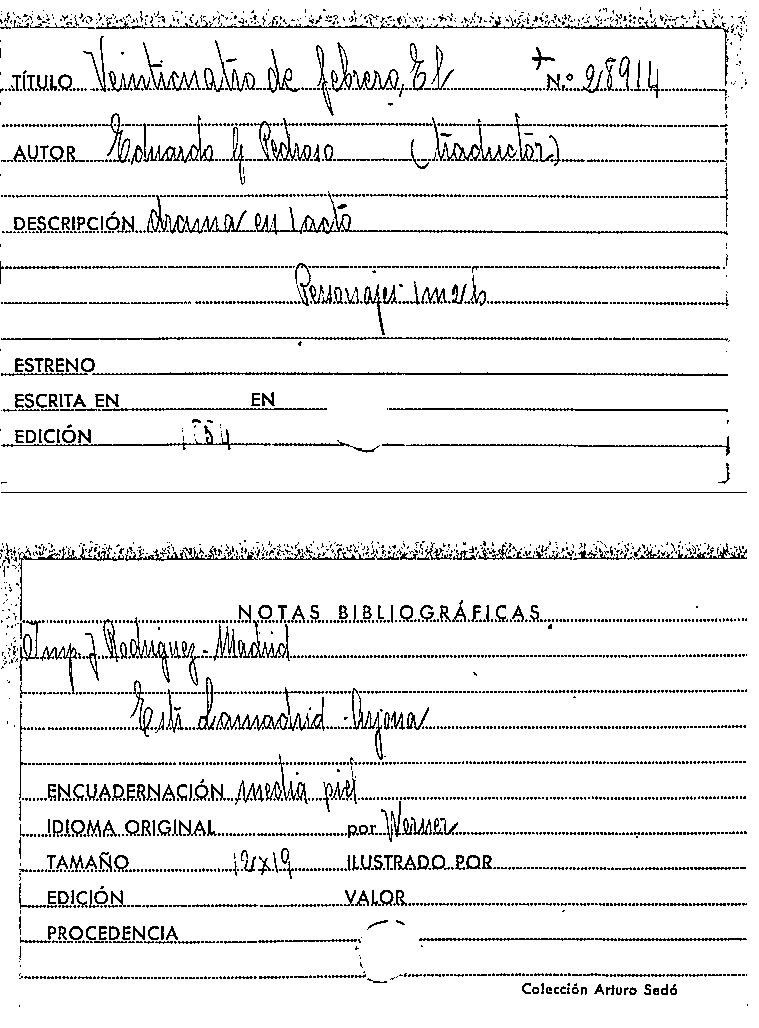 TÍTULO Veinticuatro de febrero, El N.º 28914
AUTOR Eduardo G Pedroso (traductor)
DESCRIPCIÓN drama en 1 acto
Personajes 1m2h
ESTRENO
ESCRITA EN EN
EDICIÓN 1854
NOTAS BIBLIOGRÁFICAS
Imp J Rodriguez - Madrid
Lamadrid - Arjona
ENCUADERNACIÓN media piel
IDIOMA ORIGINAL por Werner
TAMAÑO 12x19 ILUSTRADO POR
EDICIÓN VALOR
PROCEDENCIA
Colección Arturo Sedó